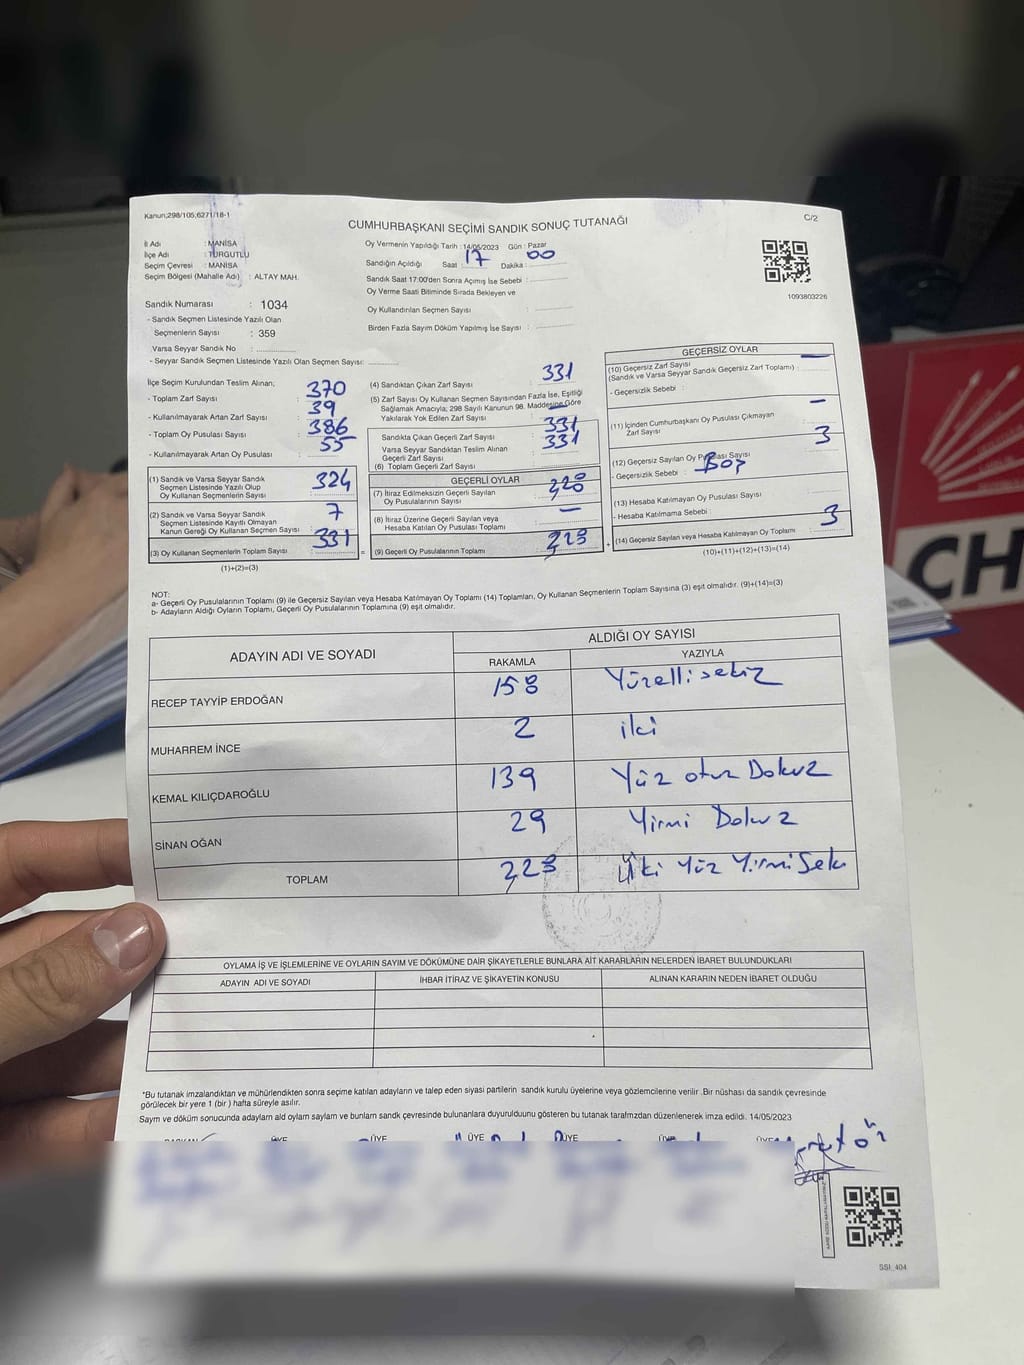 Kanun;298/105,6271/18-1
C/2
CUMHURBAŞKANI SEÇİMİ SANDIK SONUÇ TUTANAĞI
İl Adı : MANİSA
İlçe Adı : TURGUTLU
Seçim Çevresi : MANİSA
Seçim Bölgesi (Mahalle Adı) : ALTAY MAH.
Sandık Numarası : 1034
- Sandık Seçmen Listesinde Yazılı Olan
Seçmenlerin Sayısı : 359
Varsa Seyyar Sandık No :
- Seyyar Sandık Seçmen Listesinde Yazılı Olan Seçmen Sayısı:
Oy Vermenin Yapıldığı Tarih : 14/05/2023 Gün : Pazar
Sandığın Açıldığı Saat 17 Dakika : 00
Sandık Saat 17:00'den Sonra Açımış İse Sebebi :
Oy Verme Saati Bitiminde Sırada Bekleyen ve
Oy Kullandırılan Seçmen Sayısı :
Birden Fazla Sayım Döküm Yapılmış İse Sayısı :
1093803226
İlçe Seçim Kurulundan Teslim Alınan;
- Toplam Zarf Sayısı : 370
- Kullanılmayarak Artan Zarf Sayısı : 39
- Toplam Oy Pusulası Sayısı : 386
- Kullanılmayarak Artan Oy Pusulası : 55
(1) Sandık ve Varsa Seyyar Sandık
Seçmen Listesinde Yazılı Olup
Oy Kullanan Seçmenlerin Sayısı : 324
(2) Sandık ve Varsa Seyyar Sandık
Seçmen Listesinde Kayıtlı Olmayan
Kanun Gereği Oy Kullanan Seçmen Sayısı : 7
(3) Oy Kullanan Seçmenlerin Toplam Sayısı : 331
(1)+(2)=(3)
(4) Sandıktan Çıkan Zarf Sayısı : 331
(5) Zarf Sayısı Oy Kullanan Seçmen Sayısından Fazla İse, Eşitliği
Sağlamak Amacıyla; 298 Sayılı Kanunun 98. Maddesine Göre
Yakılarak Yok Edilen Zarf Sayısı :
Sandıkta Çıkan Geçerli Zarf Sayısı : 331
Varsa Seyyar Sandıktan Teslim Alınan
Geçerli Zarf Sayısı
(6) Toplam Geçerli Zarf Sayısı : 331
GEÇERLİ OYLAR
(7) İtiraz Edilmeksizin Geçerli Sayılan
Oy Pusulalarının Sayısı :
(8) İtiraz Üzerine Geçerli Sayılan veya
Hesaba Katılan Oy Pusulası Toplamı : —
(9) Geçerli Oy Pusulalarının Toplamı :
GEÇERSİZ OYLAR
(10) Geçersiz Zarf Sayısı —
(Sandık ve Varsa Seyyar Sandık Geçersiz Zarf Toplamı) :
- Geçersizlik Sebebi :
(11) İçinden Cumhurbaşkanı Oy Pusulası Çıkmayan —
Zarf Sayısı
(12) Geçersiz Sayılan Oy Pusulası Sayısı 3
- Geçersizlik Sebebi : Boş
(13) Hesaba Katılmayan Oy Pusulası Sayısı
- Hesaba Katılmama Sebebi :
(14) Geçersiz Sayılan veya Hesaba Katılmayan Oy Toplamı : 3
(10)+(11)+(12)+(13)=(14)
NOT:
a- Geçerli Oy Pusulalarının Toplamı (9) ile Geçersiz Sayılan veya Hesaba Katılmayan Oy Toplamı (14) Toplamları, Oy Kullanan Seçmenlerin Toplam Sayısına (3) eşit olmalıdır. (9)+(14)=(3)
b- Adayların Aldığı Oyların Toplamı, Geçerli Oy Pusulalarının Toplamına (9) eşit olmalıdır.
ADAYIN ADI VE SOYADI
ALDIĞI OY SAYISI
RAKAMLA YAZIYLA
RECEP TAYYİP ERDOĞAN 158 Yüzellisekiz
MUHARREM İNCE 2 iki
KEMAL KILIÇDAROĞLU 139 Yüz otuz Dokuz
SİNAN OĞAN 29 Yirmi Dokuz
TOPLAM Üki Yüz Yirmi Sek
OYLAMA İŞ VE İŞLEMLERİNE VE OYLARIN SAYIM VE DÖKÜMÜNE DAİR ŞİKAYETLERLE BUNLARA AİT KARARLARIN NELERDEN İBARET BULUNDUKLARI
ADAYIN ADI VE SOYADI İHBAR İTİRAZ VE ŞİKAYETİN KONUSU ALINAN KARARIN NEDEN İBARET OLDUĞU
*Bu tutanak imzalandıktan ve mühürlendikten sonra seçime katılan adayların ve talep eden siyasi partilerin sandık kurulu üyelerine veya gözlemcilerine verilir .Bir nüshası da sandık çevresinde
görülecek bir yere 1 (bir ) hafta süreyle asılır.
Sayım ve döküm sonucunda adayların ald oyların sayları ve bunların sandk çevresinde bulunanlara duyurulduunu gösteren bu tutanak tarafmzdan düzenlenerek imza edildi. 14/05/2023
BAŞKAN ÜYE ÜYE ÜYE ÜYE ÜYE ÜYE
SSI_404
CH